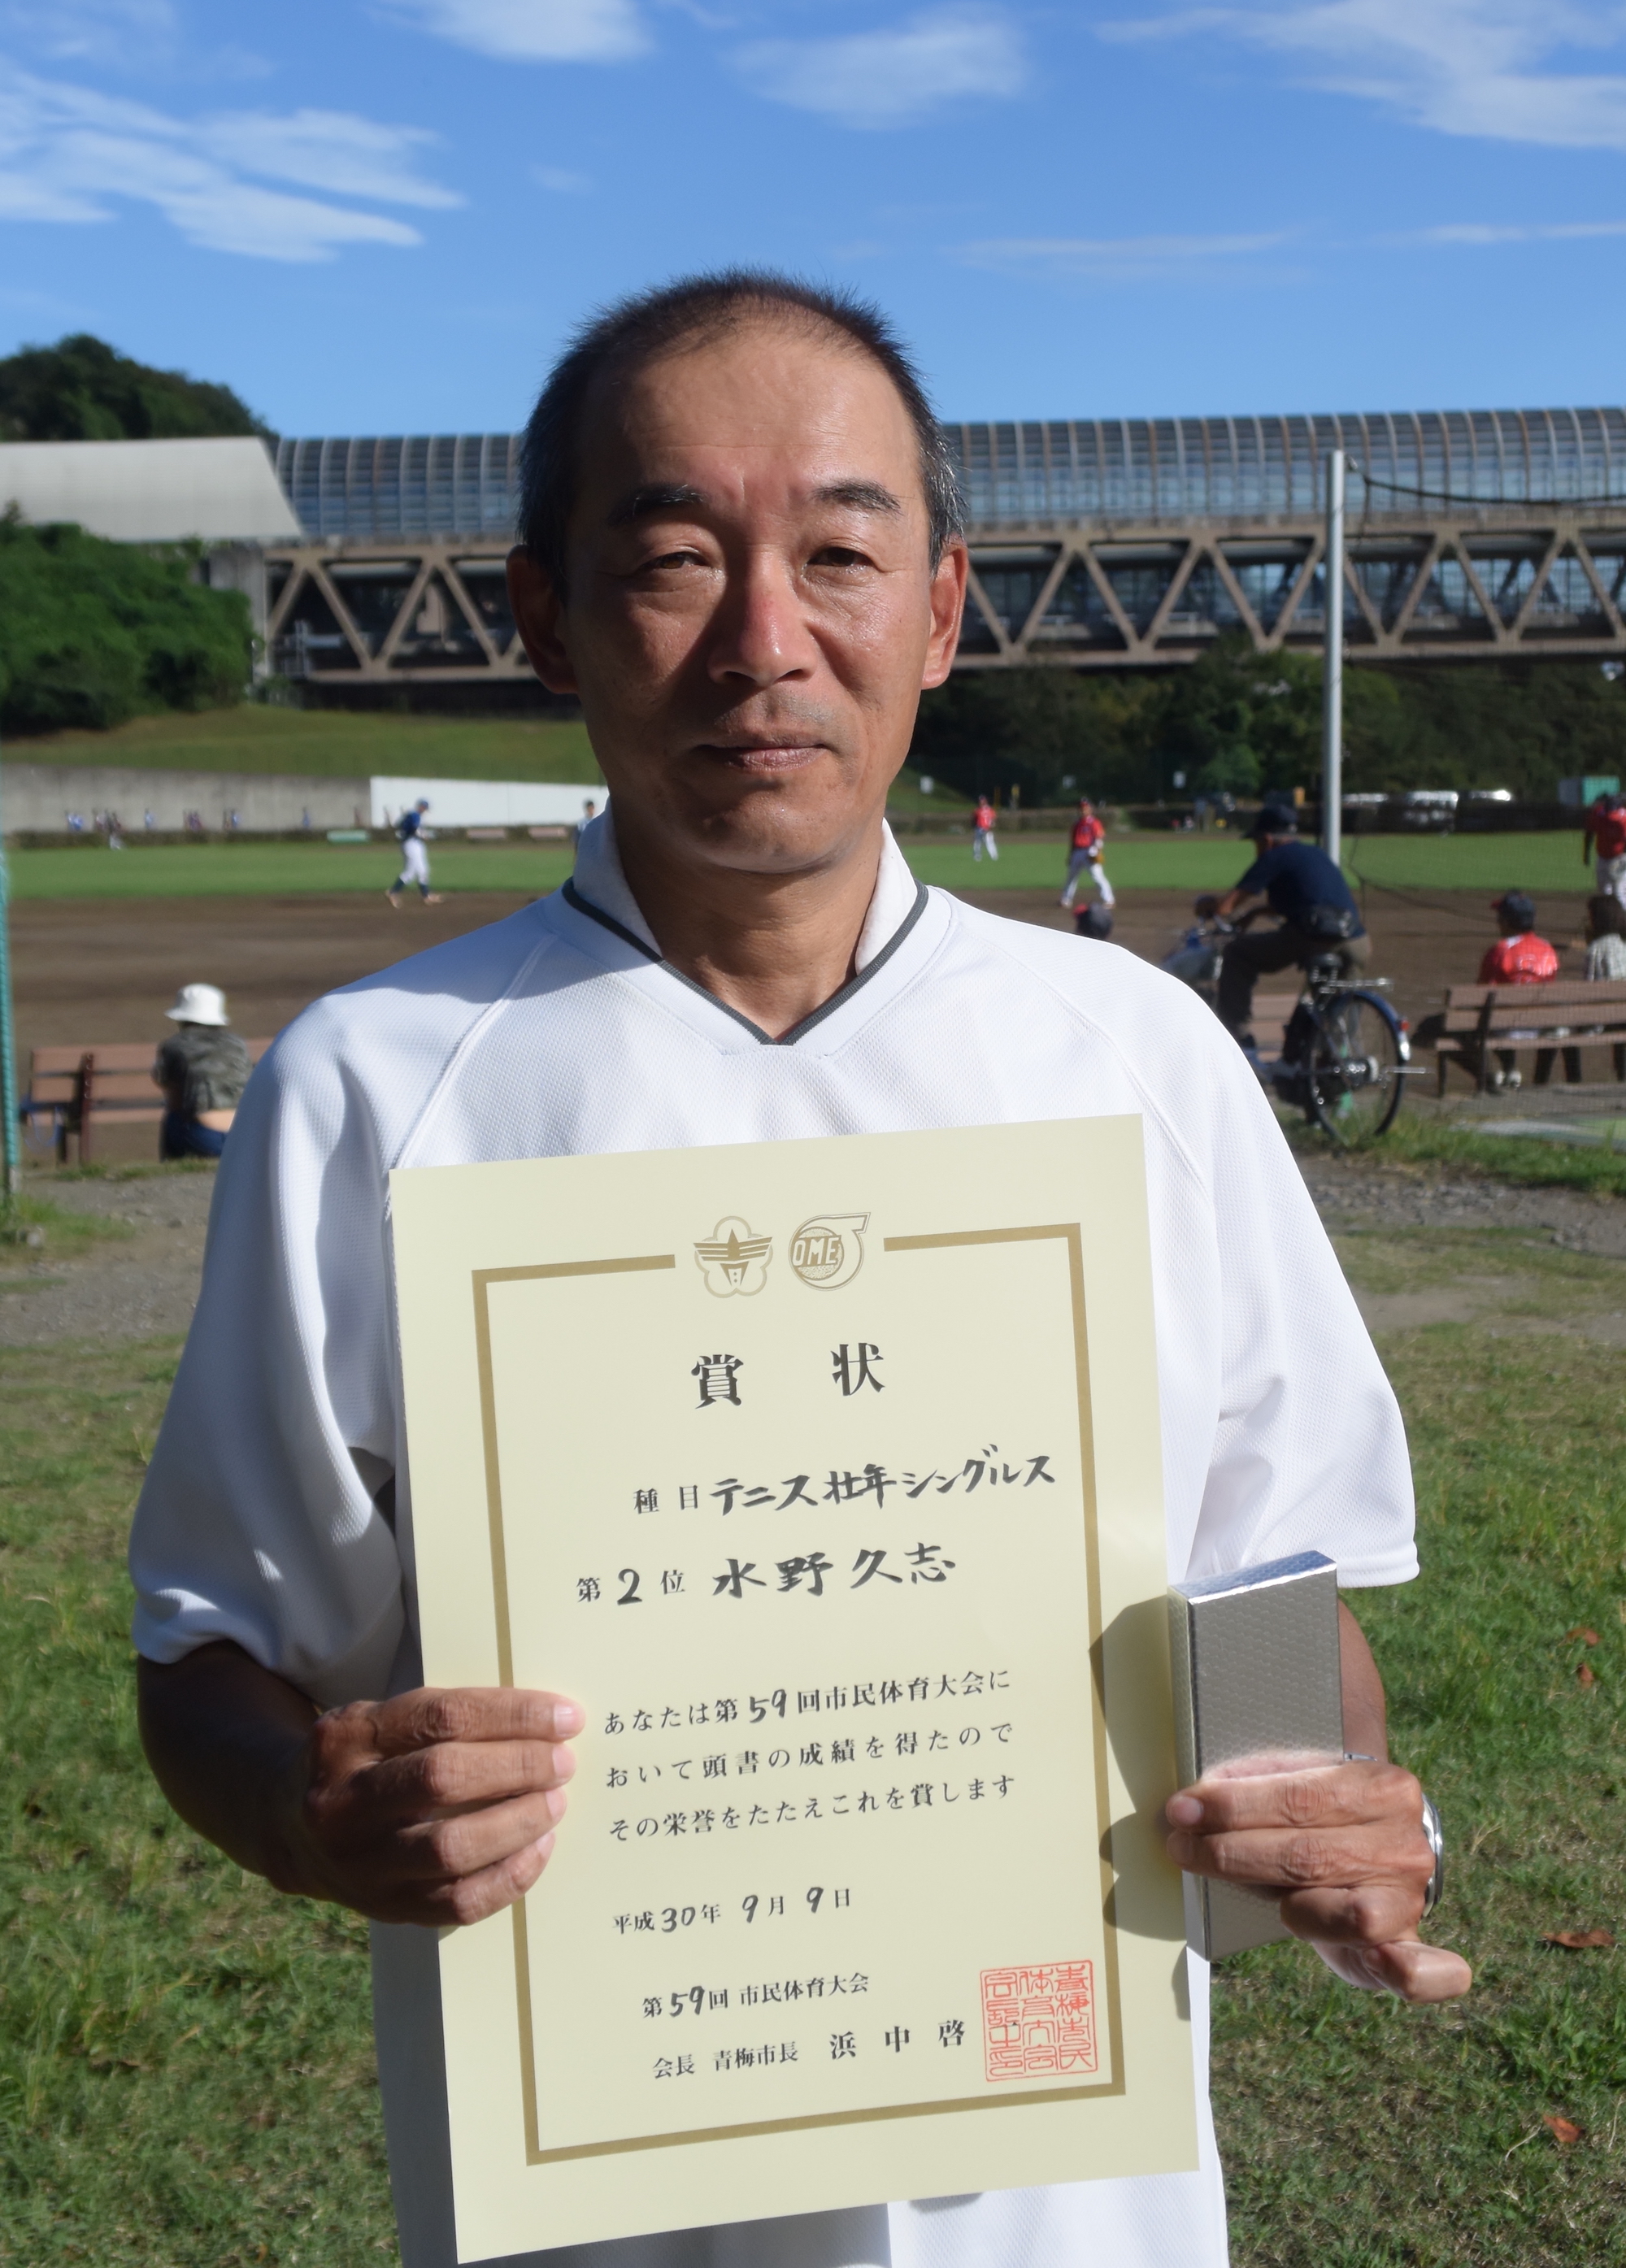 OME
賞状
種目 テニス壮年シングルス
第2位 水野久志
あなたは第59回市民体育大会に
おいて頭書の成績を得たので
その栄誉をたたえこれを賞します
平成30年 9月 9日
第59回 市民体育大会
会長 青梅市長 浜中啓